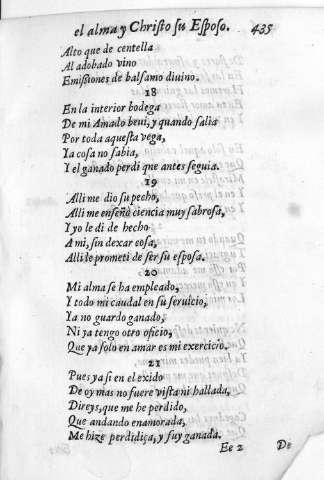 el alma y Christo su Esposo. 435
Alto que de centella
Al adobado vino
Emissiones de balsamo diuino.
18
En la interior bodega
De mi Amado beui, y quando salia
Por toda aquesta vega,
Ya cosa no sabia,
Y el ganado perdi que antes seguia.
19
Alli me dio su pecho,
Alli me enseñò ciencia muy sabrosa,
Y yo le di de hecho
A mi, sin dexar cosa,
Alli le prometi de ser su esposa.
20
Mi alma se ha empleado,
Y todo mi caudal en su seruicio,
Ya no guardo ganado,
Ni ya tengo otro oficio,
Que ya solo en amar es mi exercicio.
21
Pues ya si en el exido
De oy mas no fuere vista ni hallada,
Direys, que me he perdido,
Que andando enamorada,
Me hize perdidiça, y fuy ganada.
Ee 2 De